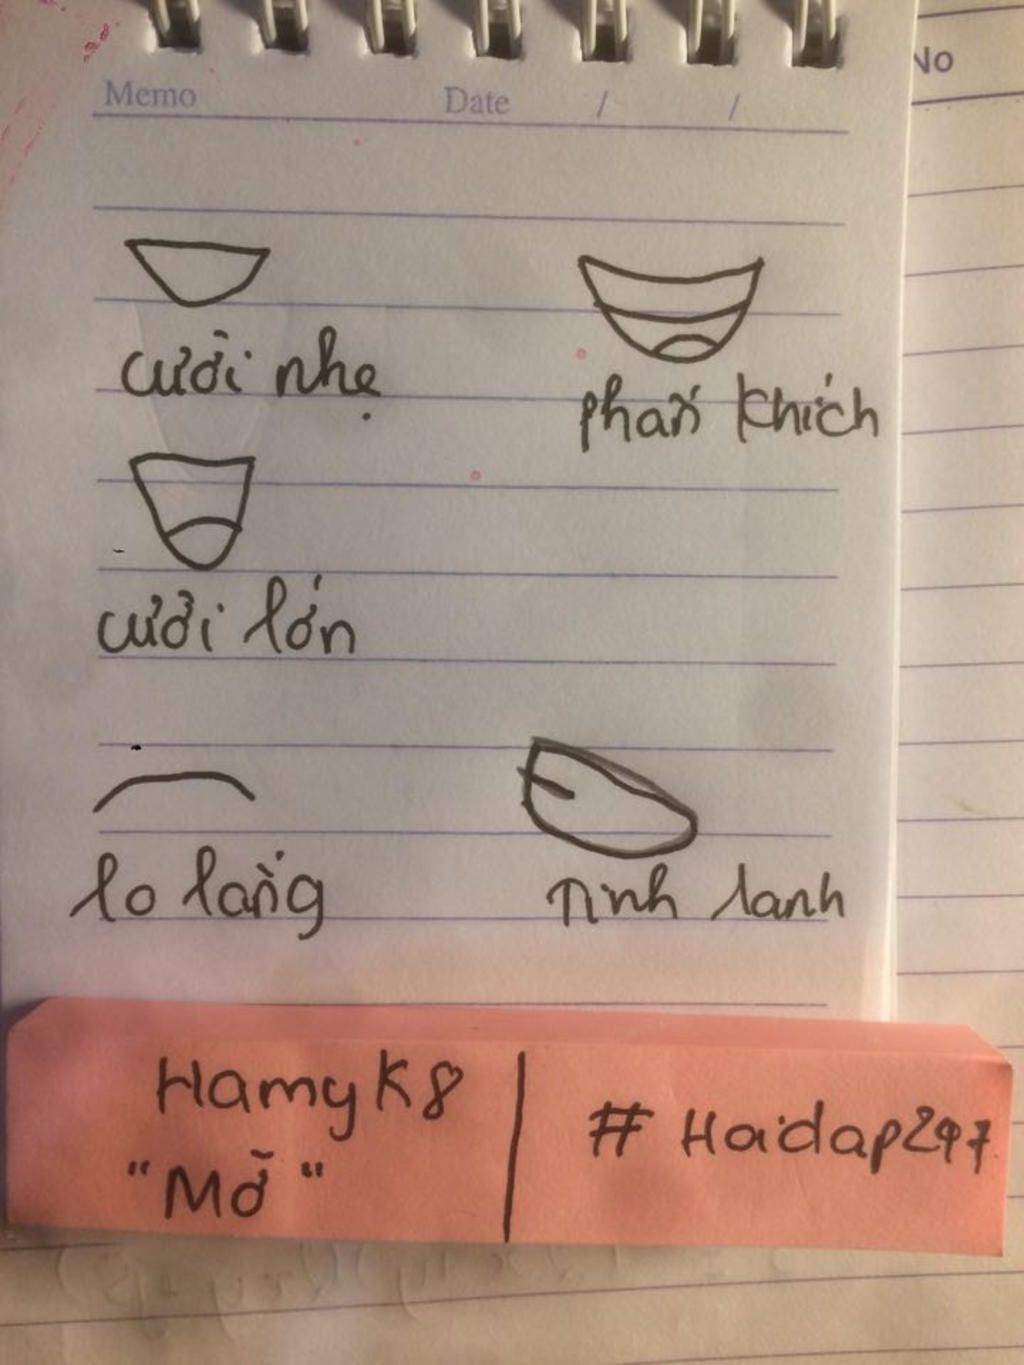 No
Memo Date / /
cười nhẹ
phấn khích
cười lớn
lo lắng
Tinh lanh
HamyK8
"Mỡ"
# Hoidap247